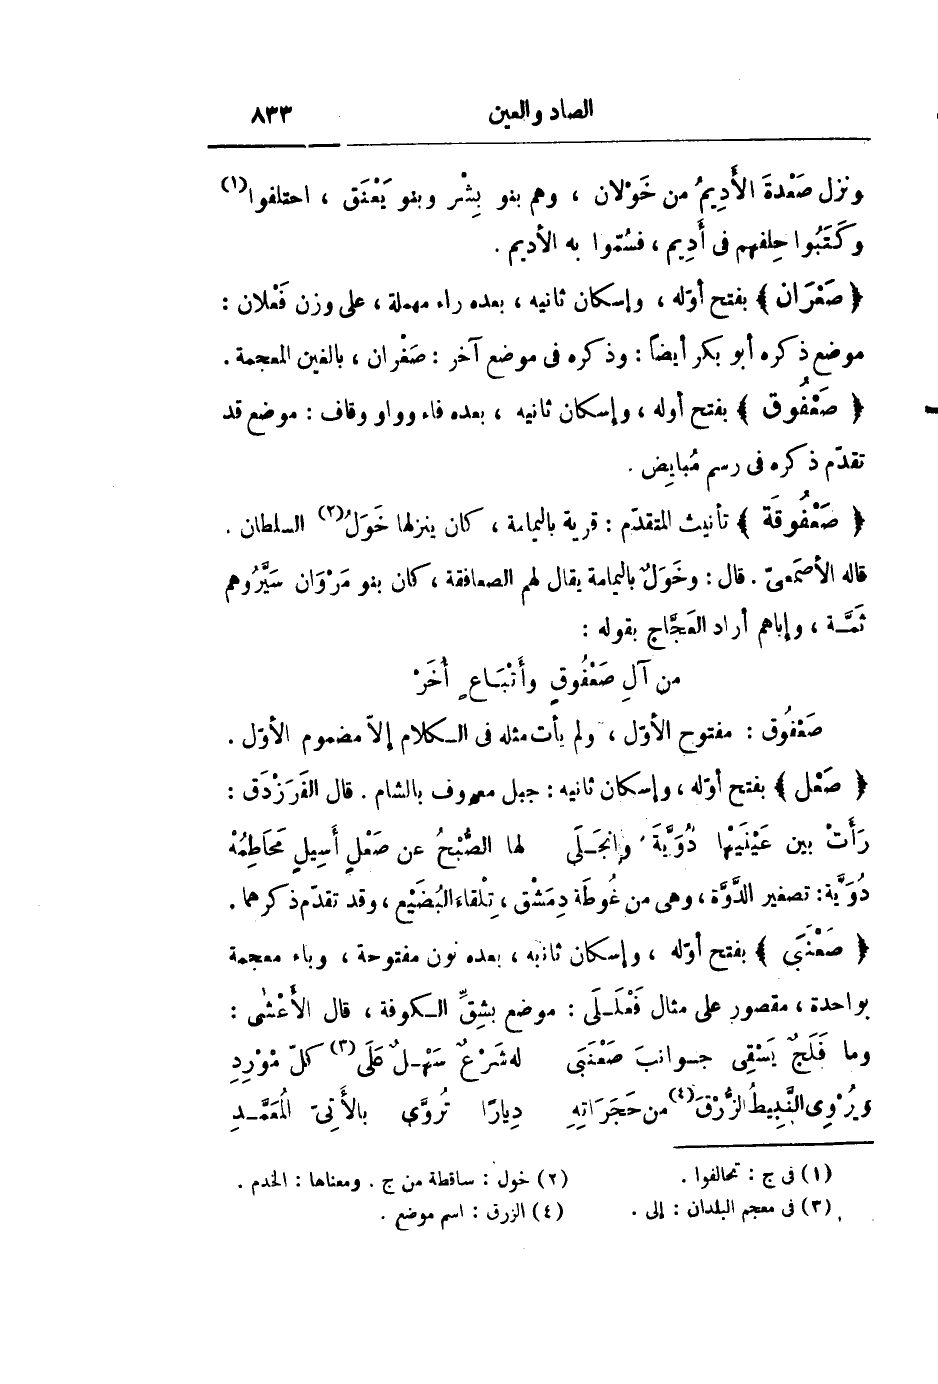 الصاد والعين ٨٣٣
ونزل صَعْدةَ الأَدِيمُ من خَوْلان ، وهم بنو بِشْر وبنو يَعْنَق ، احتلفوا(١)
وكَتَبُوا حِلفهم فى أَدِيم ، فسُمّوا به الأديم .
﴿ صَعْرَان ﴾ بفتح أوّله ، وإسكان ثانيه ، بعده راء مهملة ، على وزن فَعْلان :
موضع ذكره أبو بكر أيضاً : وذكره فى موضع آخر : صَغْران ، بالغين المعجمة .
﴿ صَعْفُوق ﴾ بفتح أوله ، وإسكان ثانيه ، بعده فاء وواو وقاف : موضع قد
تقدّم ذكره فى رسم مُبايِض .
﴿ صَعْفُوقَة ﴾ تأنيث المتقدّم : قرية باليمامة ، كان ينزلها خَوَلُ(٢) السلطان .
قاله الأصمَعىّ . قال : وخَوَلٌ باليمامة يقال لهم الصعافقة ، كان بنو مَرْوَان سَيَّرُوهم
ثَمَّـة ، وإياهم أراد العَجَّاج بقوله :
من آلِ صَعْفُوقٍ وأَتْبَـاعٍ أُخَرْ
صَعْفُوق : مفتوح الأوّل ، ولم يأت مثله فى الـكلام إلاّ مضموم الأوّل .
﴿ صَعْل ﴾ بفتح أوّله ، وإسكان ثانيه : جبل معروف بالشام . قال الفَرَزْدَق :
رَأَتْ بين عَيْنَيْها دُوَيَّةَ وانجَـلَى لها الصُّبْحُ عن صَعْلٍ أَسِيلٍ مَخَاطِمُهْ
دُوَيَّة : تصغير الدَّوَّة ، وهى من غُوطَة دِمَشْق ، تِلْقاءَ البُضَيْع ، وقد تقدّم ذكرهما .
﴿ صَعْنَبَى ﴾ بفتح أوّله ، وإسكان ثانيه ، بعده نون مفتوحة ، وباء معجمة
بواحدة ، مقصور على مثال فَعْلَـلَى : موضع بشِقِّ الـكوفة ، قال الأَعْشَى :
وما فَلَجٌ يَسْقِى جـوانبَ صَعْنَبَى له شَرْعٌ سَهْـلٌ عَلَى(٣) كلّ مَوْرِدِ
ويُرْوِى النَّبِيطُ الزُّرْقَ(٤) من حَجَرَاتِهِ دِيارًا تُرَوَّى بالأَتِىّ المُعَمَّـدِ
(١) فى ج : تحالفوا . (٢) خول : ساقطة من ج . ومعناها : الخدم .
(٣) فى معجم البلدان : إلى . (٤) الزرق : اسم موضع .